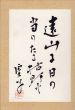 遠山に日の
当りたる
枯野かな
虚子